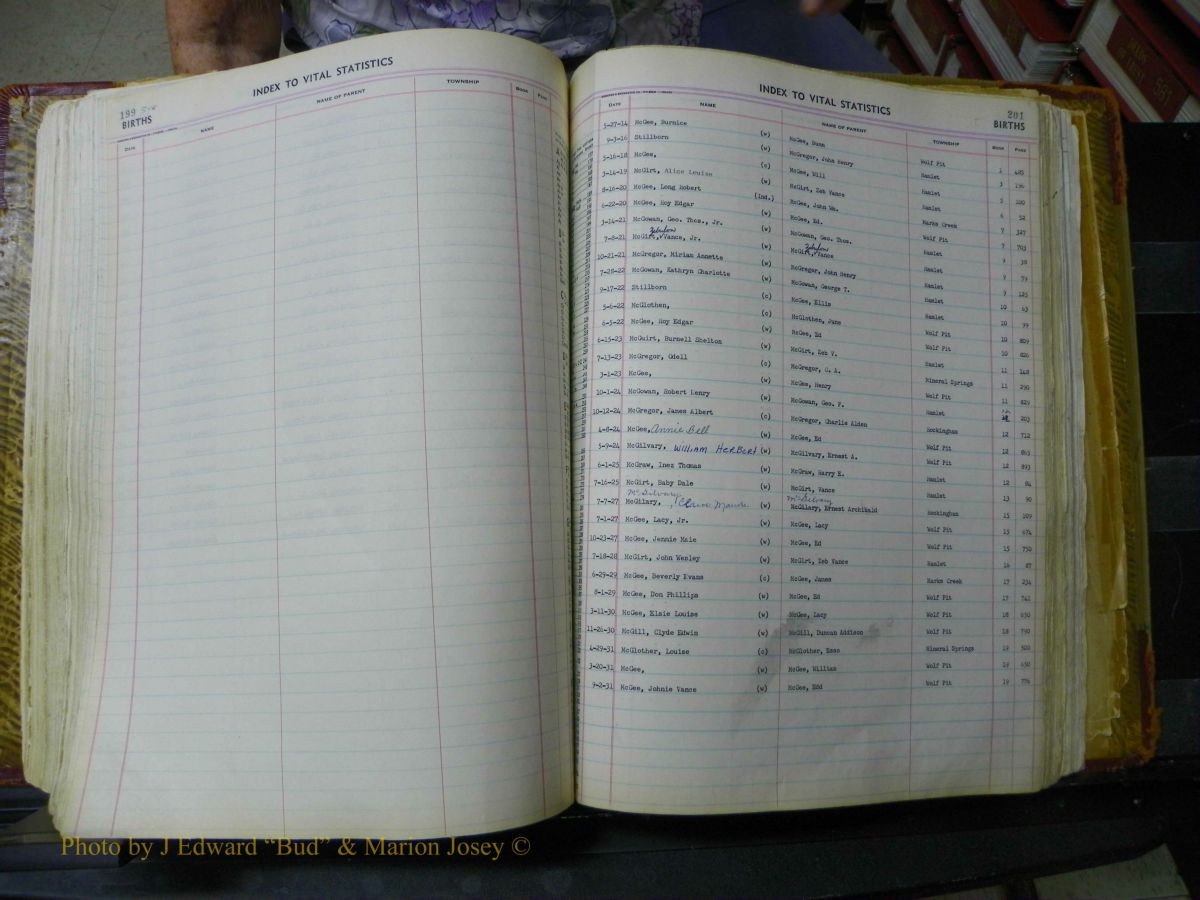 199
INDEX TO VITAL STATISTICS
BIRTHS
DATE NAME NAME OF PARENT TOWNSHIP BOOK PAGE
INDEX TO VITAL STATISTICS
201
BIRTHS
DATE NAME NAME OF PARENT TOWNSHIP BOOK PAGE
5-27-14 McGee, Burnice (w) McGee, Dunn Wolf Pit 1 485
9-3-16 Stillborn (w) McGregor, John Henry Hamlet 3
5-16-18 McGee, (c) McGee, Will Hamlet 5
3-14-19 McGirt, Alice Louise (w) McGirt, Zeb Vance Hamlet 6 52
8-16-20 McGee, Long Robert (Ind.) McGee, John Wm. Marks Creek 7 327
6-22-20 McGee, Roy Edgar (w) McGee, Ed. Wolf Pit 7 703
3-14-21 McGowan, Geo. Thos., Jr. (w) McGowan, Geo. Thos. Hamlet 9 38
Zebulon Zebulon
7-8-21 McGirt, Vance, Jr. (w) McGirt, Vance Hamlet 9 79
10-21-21 McGregor, Miriam Annette (w) McGregor, John Henry Hamlet 9 125
7-28-22 McGowan, Kathryn Charlotte (w) McGowan, George T. Hamlet 10 63
9-17-22 Stillborn (c) McGee, Ellis Hamlet 10 99
5-6-22 McGlothen, (c) McGlothen, June Wolf Pit 10 809
6-5-22 McGee, Roy Edgar (w) McGee, Ed Wolf Pit 10 826
6-15-23 McGuirt, Burnell Shelton (w) McGirt, Zeb V. Hamlet 11 148
7-13-23 McGregor, Odell (c) McGregor, C. A. Mineral Springs 11 290
3-1-23 McGee, (w) McGee, Henry Wolf Pit 11 829
10-1-24 McGowan, Robert Henry (w) McGowan, Geo. F. Hamlet 203
10-12-24 McGregor, James Albert (c) McGregor, Charlie Alden Rockingham 12 712
4-8-24 McGee, Annie Bell (w) McGee, Ed Wolf Pit 12 863
5-9-24 McGilvary, WIlliAM HERBERT (w) McGilvary, Ernest A. Wolf Pit 12 893
6-1-25 McGraw, Inez Thomas (w) McGraw, Harry E. Hamlet 12 84
7-16-25 McGirt, Baby Dale (w) McGirt, Vance Hamlet 13 90
McGilvary McGilvary
7-7-27 McGilary, Claire Maude (w) McGilary, Ernest Archibald Rockingham 15 509
7-1-27 McGee, Lacy, Jr. (w) McGee, Lacy Wolf Pit 15 674
10-23-27 McGee, Jennie Maie (w) McGee, Ed Wolf Pit 15 750
7-18-28 McGirt, John Wesley (w) McGirt, Zeb Vance Hamlet 16 87
6-29-29 McGee, Beverly Evans (c) McGee, James Marks Creek 17 234
8-1-29 McGee, Don Phillips (w) McGee, Ed Wolf Pit 17 741
3-11-30 McGee, Elsie Louise (w) McGee, Lacy Wolf Pit 18 650
11-26-30 McGill, Clyde Edwin (w) McGill, Duncan Addison Wolf Pit 18 750
4-29-31 McGlother, Louise (c) McGlother, Esso Mineral Springs 19 500
3-20-31 McGee, (w) McGee, William Wolf Pit 19 650
9-2-31 McGee, Johnie Vance (w) McGee, Edd Wolf Pit 19 774
Photo by J Edward “Bud” & Marion Josey ©